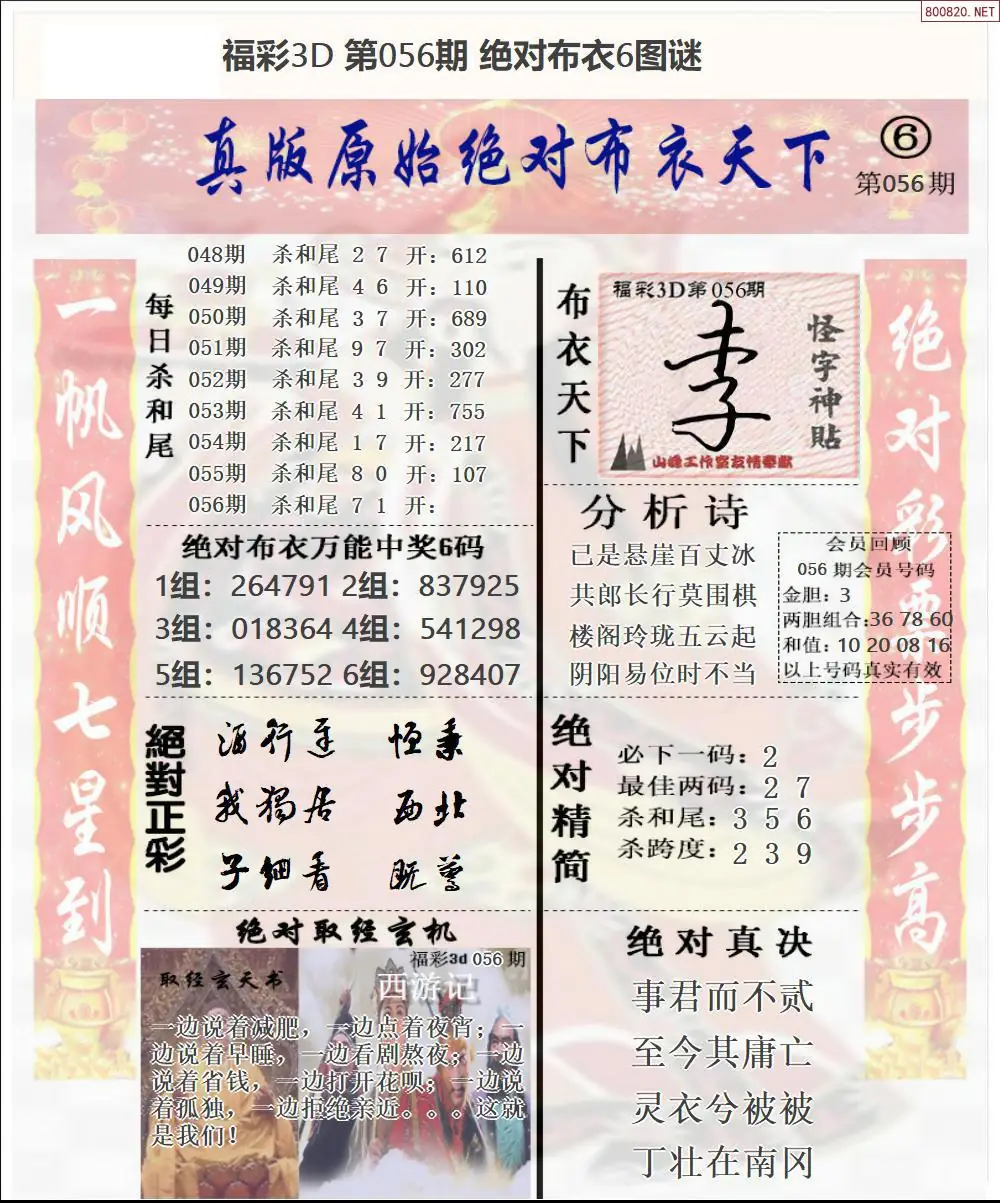 800820.NET
福彩3D 第056期 绝对布衣6图谜
真版原始绝对布衣天下
6
第056期
一帆风顺七星到
每日杀和尾
048期 杀和尾 2 7 开：612
049期 杀和尾 4 6 开：110
050期 杀和尾 3 7 开：689
051期 杀和尾 9 7 开：302
052期 杀和尾 3 9 开：277
053期 杀和尾 4 1 开：755
054期 杀和尾 1 7 开：217
055期 杀和尾 8 0 开：107
056期 杀和尾 7 1 开：
绝对布衣万能中奖6码
1组：264791 2组：837925
3组：018364 4组：541298
5组：136752 6组：928407
絕對正彩
恒秉
我獨居 西北
子細看 既
绝对取经玄机
福彩3d 056 期
取经玄天书
西游记
一边说着减肥，一边点着夜宵；一
边说着早睡，一边看剧熬夜；一边
说着省钱，一边打开花呗；一边说
着孤独，一边拒绝亲近。。。这就
是我们！
布衣天下
福彩3D第056期
李
怪字神贴
山峰工作室友情奉献
分析诗
已是悬崖百丈冰
共郎长行莫围棋
楼阁玲珑五云起
阴阳易位时不当
会员回顾
056 期会员号码
金胆：3
两胆组合:36 78 60
和值：10 20 08 16
以上号码真实有效
绝对精简
必下一码：2
最佳两码：2 7
杀和尾：3 5 6
杀跨度：2 3 9
绝对真决
事君而不贰
至今其庸亡
灵衣兮被被
丁壮在南冈
绝对彩票步步高